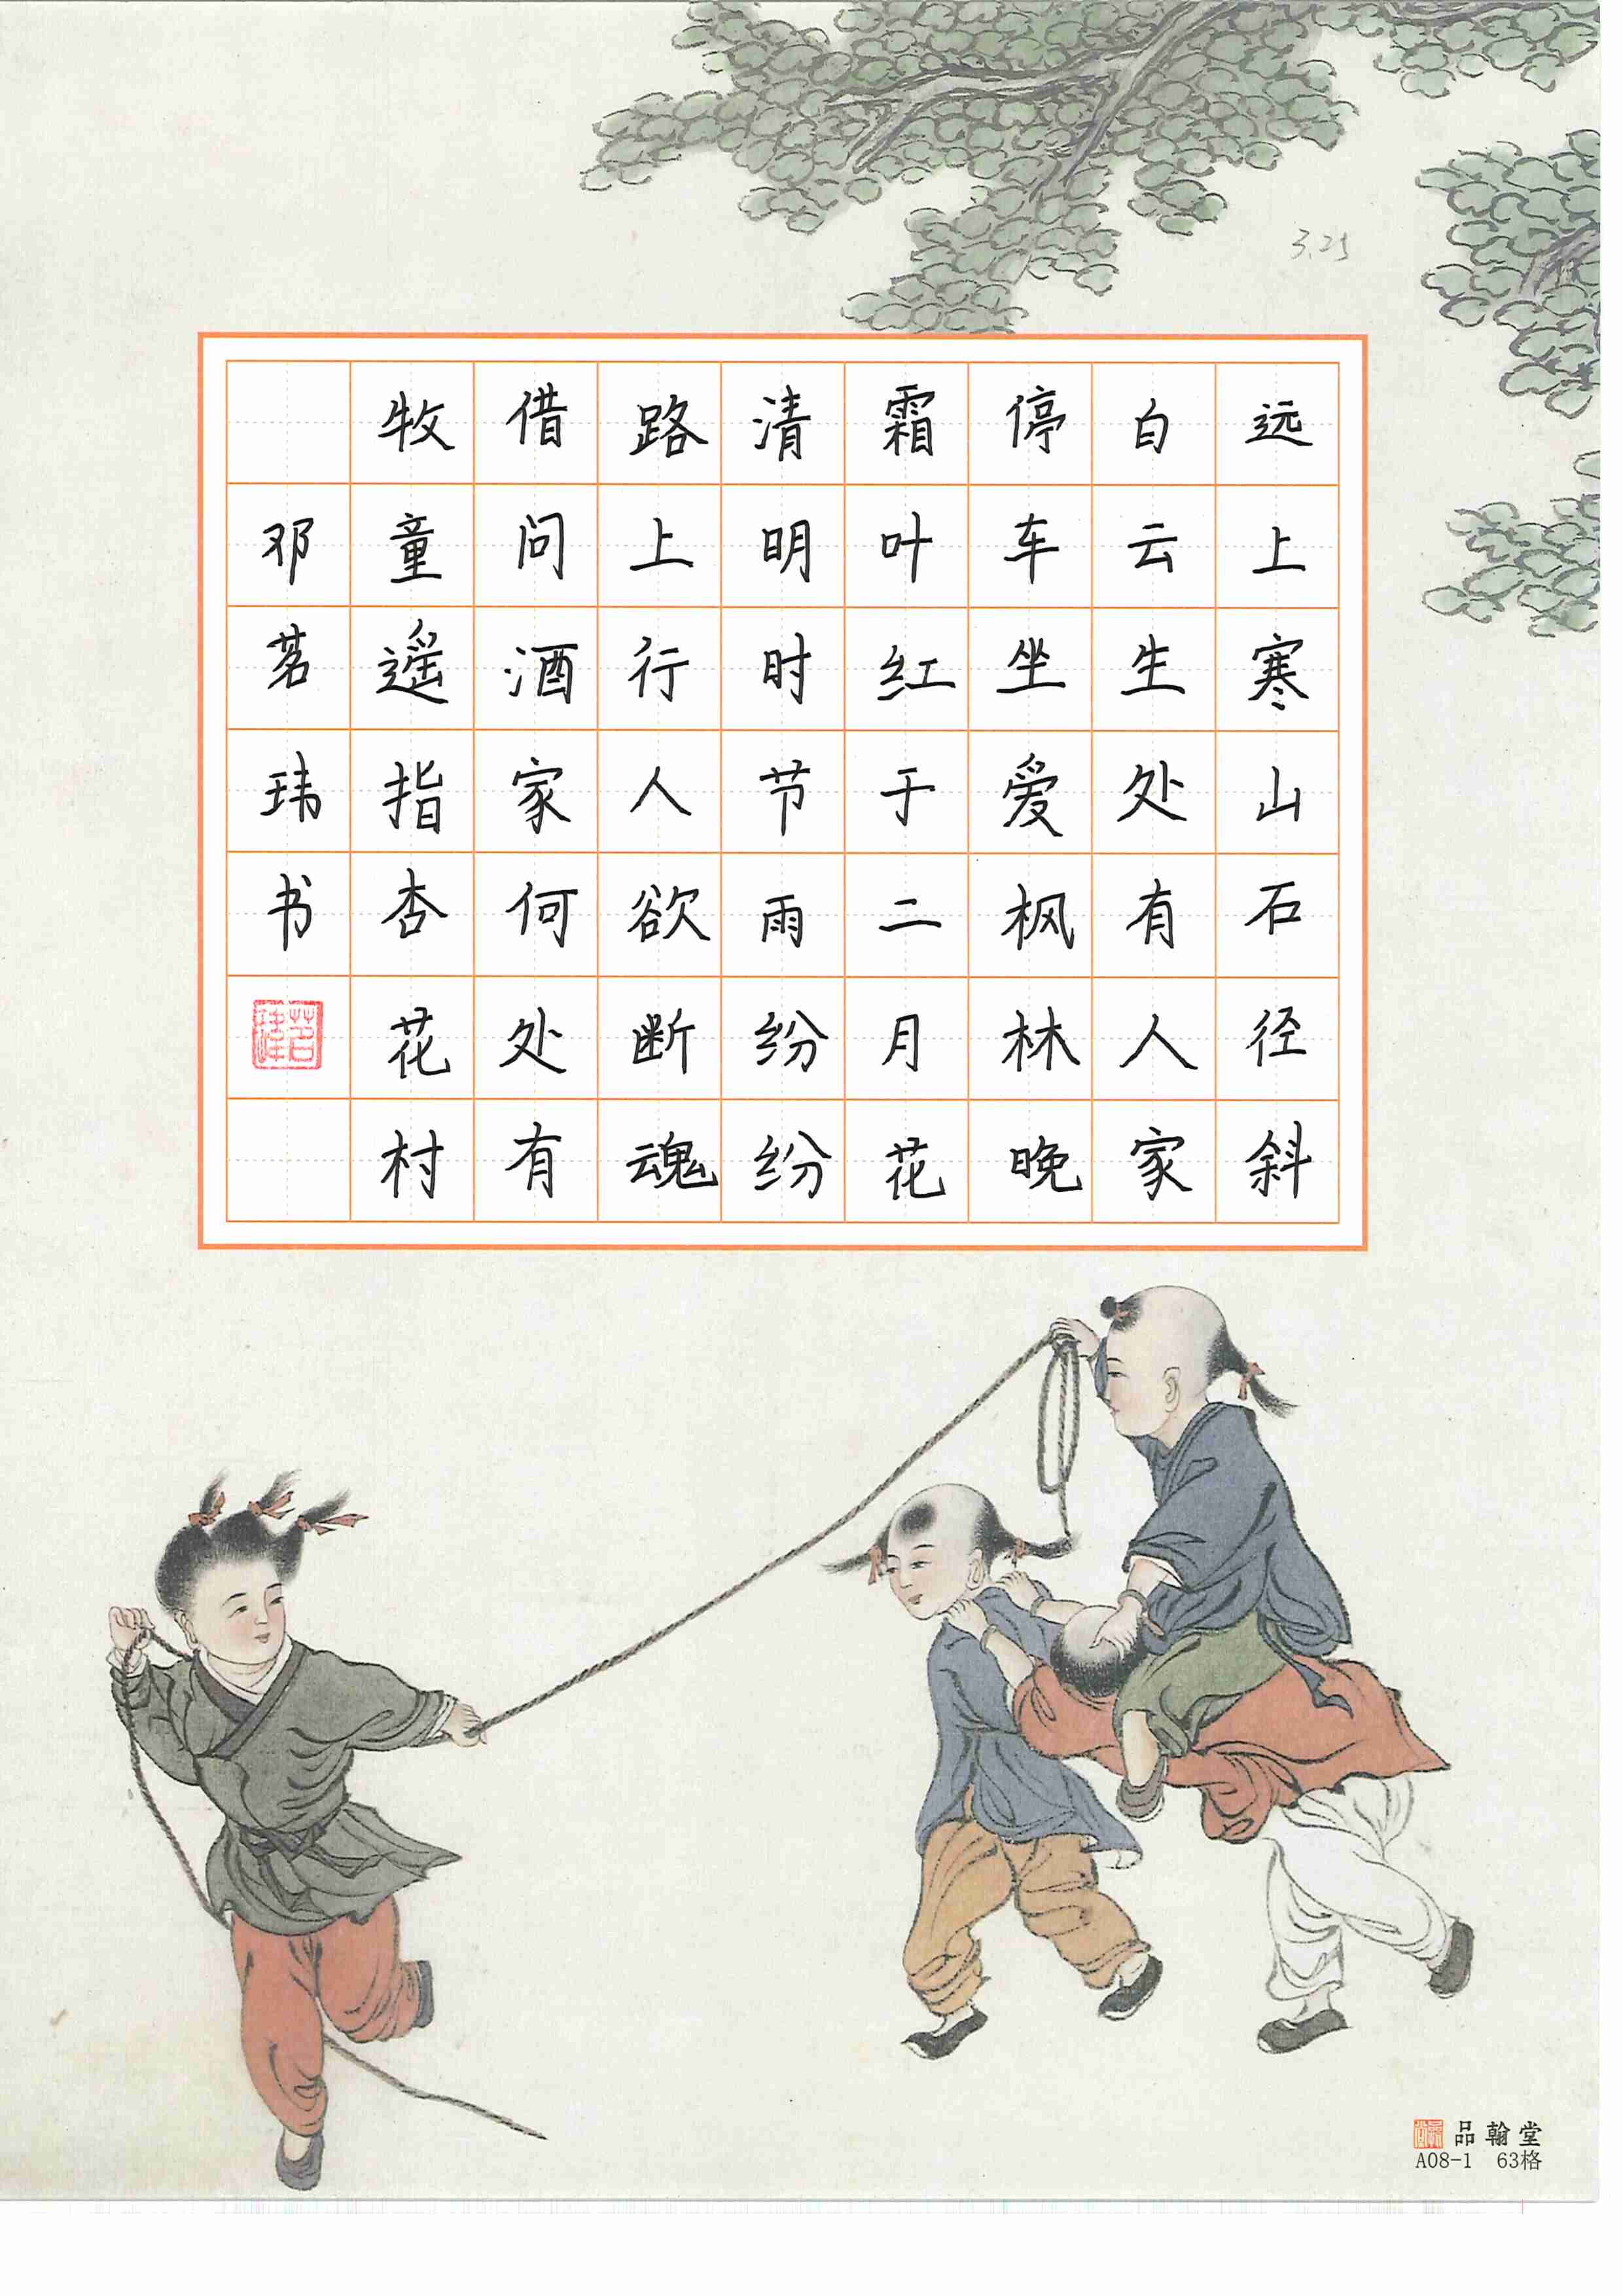 3.25
远上寒山石径斜
白云生处有人家
停车坐爱枫林晚
霜叶红于二月花
清明时节雨纷纷
路上行人欲断魂
借问酒家何处有
牧童遥指杏花村
邓茗玮书
茗玮
品翰堂
A08-1 63格